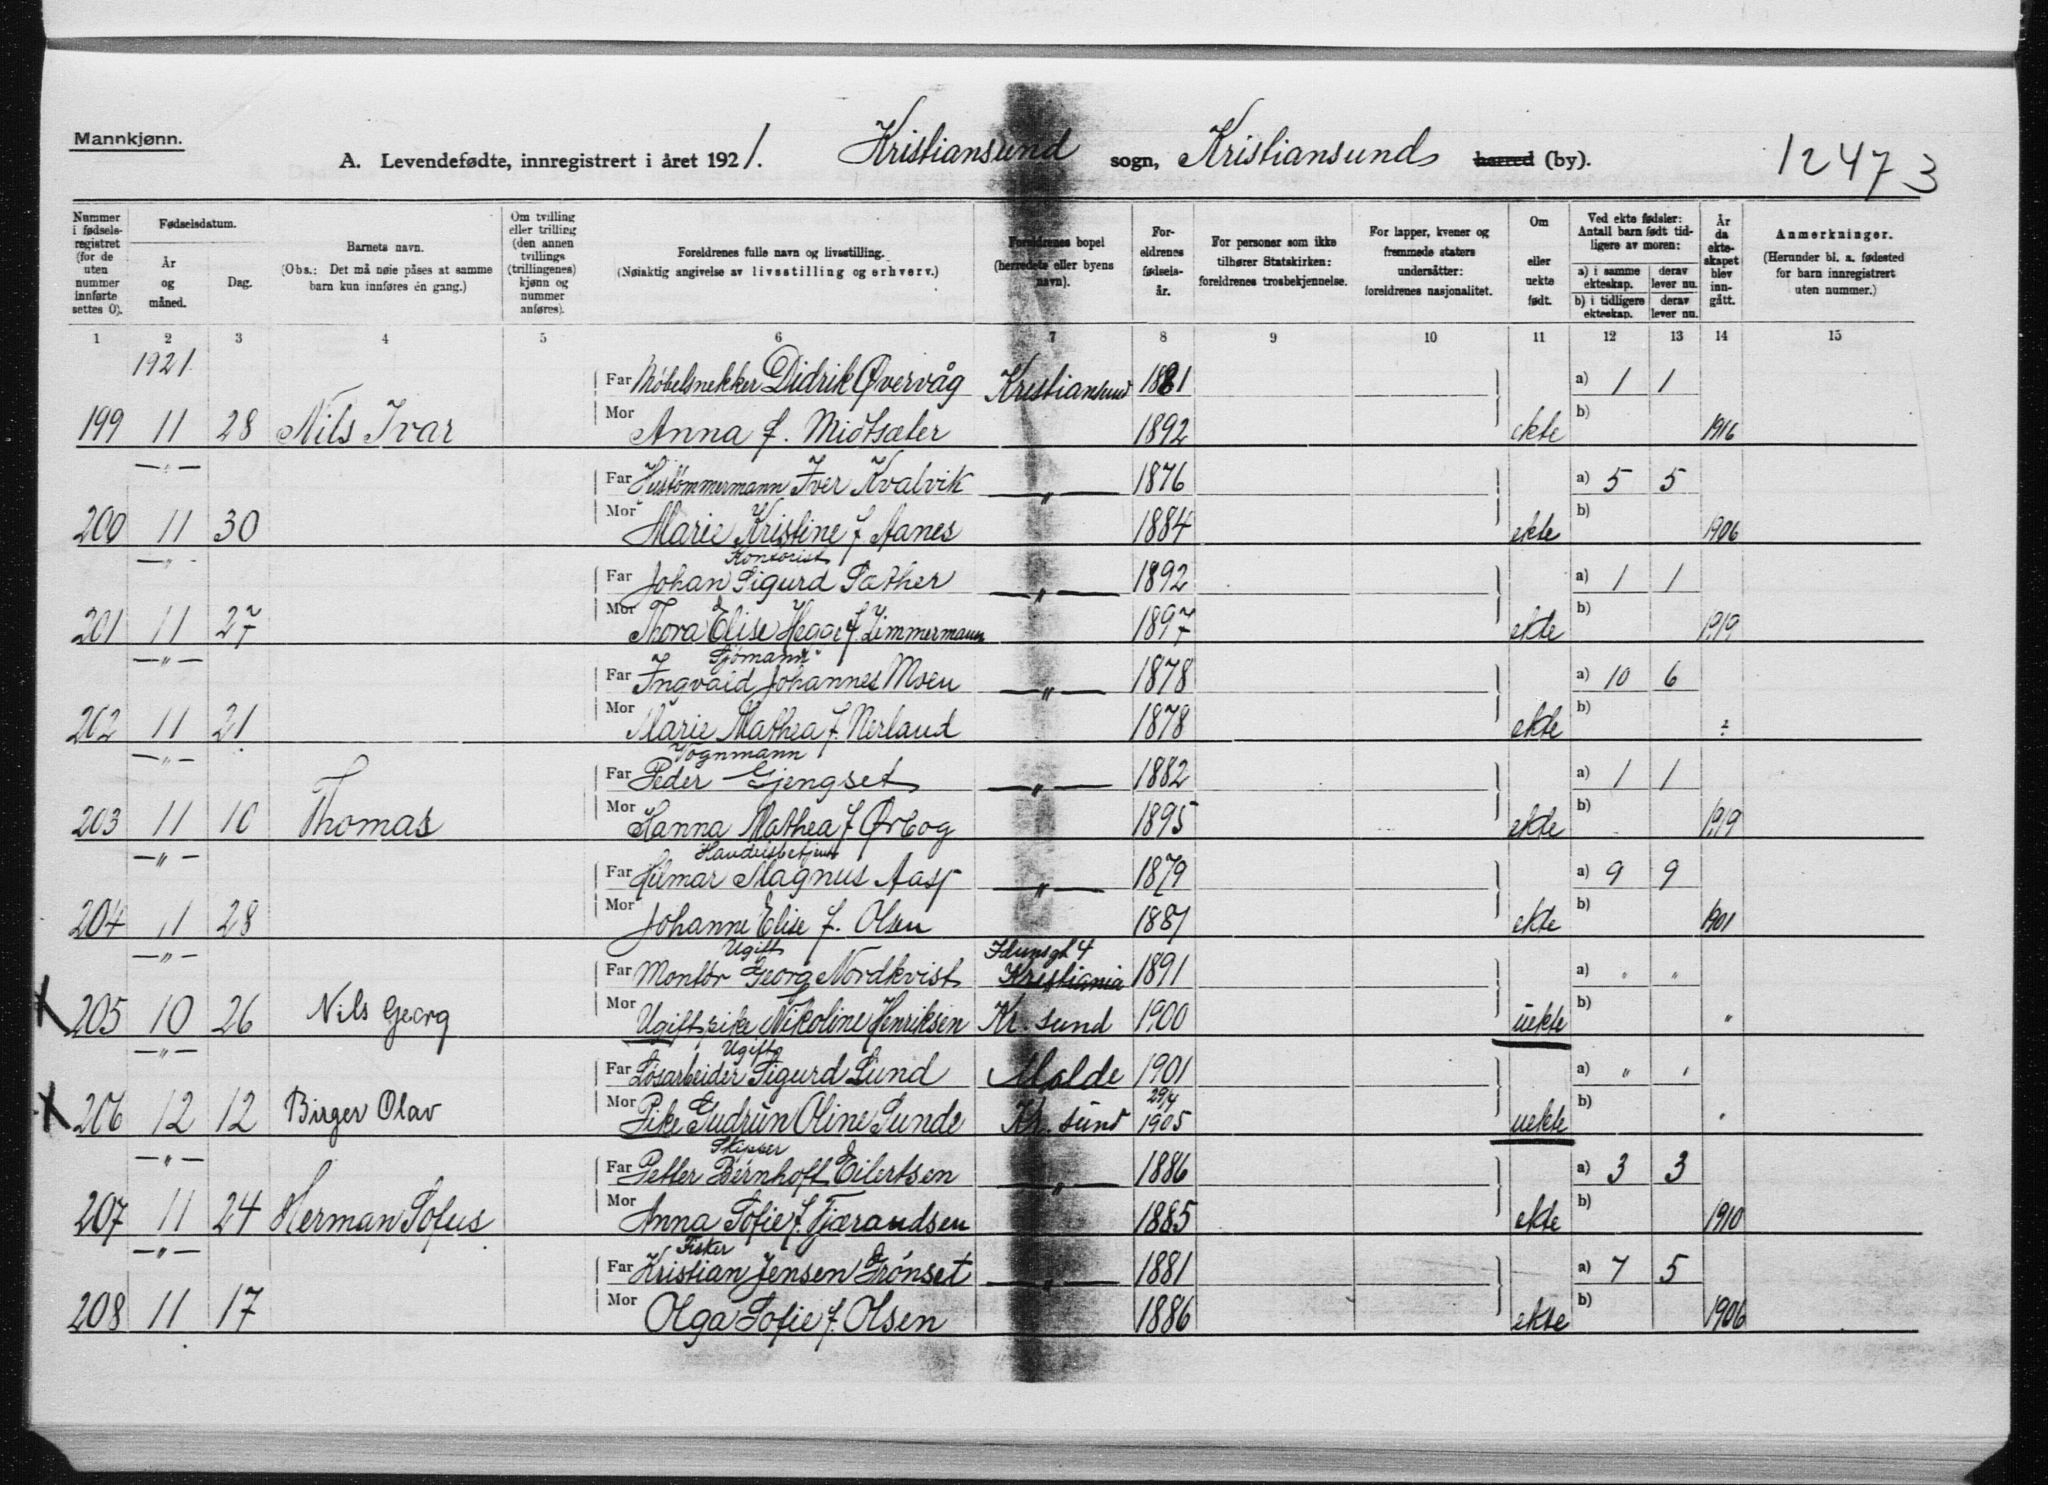 Mannkjønn.
A. Levendefødte, innregistrert i året 1921. Kristiansund sogn, Kristiansund herred (by). 12473
Nummer i fødsels-registret (for de uten nummer innførte settes 0).
Fødselsdatum.
År og måned.
Dag.
Barnets navn.
(Obs.: Det må nøie påses at samme barn kun innføres én gang.)
Om tvilling eller trilling (den annen tvillings (trillingenes) kjønn og nummer anføres).
Foreldrenes fulle navn og livsstilling.
(Nøiaktig angivelse av livsstilling og erhverv.)
Foreldrenes bopel (herredets eller byens navn).
For-eldrenes fødsels-år.
For personer som ikke tilhører Statskirken: foreldrenes trosbekjennelse.
For lapper, kvener og fremmede staters undersåtter: foreldrenes nasjonalitet.
Om eller uekte født.
Ved ekte fødsler: Antall barn født tid-ligere av moren:
a) i samme ekteskap. derav lever nu.
b) i tidligere ekteskap. derav lever nu.
År da ekte-skapet blev inn-gått.
Anmerkninger.
(Herunder bl. a. fødested for barn innregistrert uten nummer.)
1 2 3 4 5 6 7 8 9 10 11 12 13 14 15
1921
Far Møbelsnekker Didrik Øvervåg Kristiansund 1881 a) 1 1
199 11 28 Nils Ivar Mor Anna f. Midtsæter 1892 ekte b) 1916
—„— Far Hustømmermann Iver Kvalvik —„— 1876 a) 5 5
200 11 30 Mor Marie Kristine f. Aanes 1884 ekte b) 1906
Kontorist
—„— Far Johan Sigurd Sæther —„— 1892 a) 1 1
201 11 27 Mor Thora Elise Hegge f. Zimmermann 1897 ekte b) 1919
Sjømann
—„— Far Ingvald Johannes Moen —„— 1878 a) 10 6
202 11 21 Mor Marie Mathea f. Nerland 1878 ekte b) ÷
Vognmann
—„— Far Peder Gjengset —„— 1882 a) 1 1
203 11 10 Thomas Mor Hanna Mathea f. Ørbog 1895 ekte b) 1919
Handelsbetjent
—„— Far Hilmar Magnus Aasp —„— 1879 a) 9 9
204 11 28 Mor Johanne Elise f. Olsen 1881 ekte b) 1901
Ugift Idunsgt 4
—„— Far Montør Georg Nordkvist Kristiania 1891 a) „ „
X 205 10 26 Nils Georg Mor Ugift pike Nikoline Henriksen Kr. sund 1900 uekte b) „
Ugift
—„— Far Løsarbeider Sigurd Lund Molde 1901 a) „ „
X 206 12 12 Birger Olav Mor Pike Gudrun Oline Sunde Kr. sund 29/4 1905 uekte b) „
Skipper
—„— Far Petter Bernhoft Eilertsen —„— 1886 a) 3 3
207 11 24 Herman Sofus Mor Anna Sofie f. Fjærandsen 1885 ekte b) 1910
Fisker
—„— Far Kristian Jensen Grønset —„— 1881 a) 7 5
208 11 17 Mor Olga Sofie f. Olsen 1886 ekte b) 1906